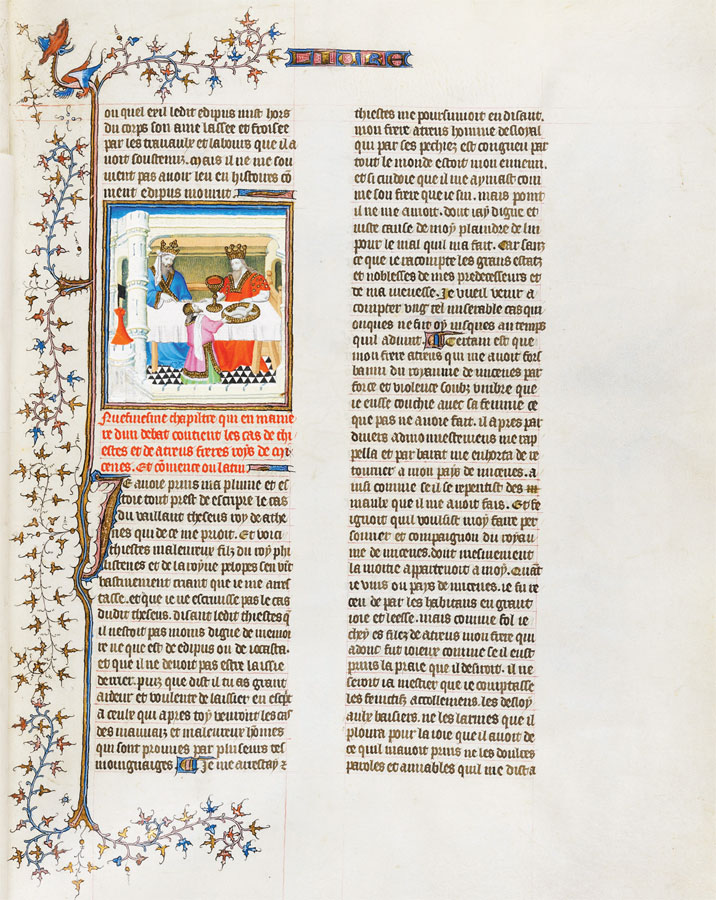 ouquel exil ledit edipus mist hors
du corps son ame lassee et froissee
par les travaulx et labours que il a
voit soustenuz. Mais il ne me sou
vient pas avoir leu en histoires co
ment edipus mourut.
Neufiesme chapiltre qui en manie
re dun debat contient les cas de thi
estes et de atreus freres roys de mi
cenes. Et comence ou latin
Je avoie prins ma plume et es
toie tout prest de escripre le cas
du vaillant theseus roy de athe
nes qui de ce me prioit. Et voici
thiestes maleureux filz du roy phi
listenes et de la royne pelopes sen vint
hastivement criant que ie me arres
tasse. et que ie ne escrivisse pas le cas
dudit theseus. disant ledit thiestes q
il nestoit pas moins digne de memoi
re ne que est de edipus ou de iocasta.
et que il ne devoit pas estre laissie
derrier puis que dist il tu as grant
ardeur et voulente de laissier en escpt
a ceulx qui apres toy vendront les cas
des mauvaiz et maleureux homes
qui sont prouves par pluseurs tes
moingnaiges. Je me arrestay z
thiestes me poursuivoit en disant.
mon frere atreus homme desloyal
qui par ses pechiez est congneu par
tout le monde estoit mon ennemi.
et si cuidoie que il me aymast com
me son frere que ie sui. mais point
il ne me amoit. dont iay digne et
iuste cause de moy plaindre de lui
pour le mal quil ma fait. Car sanz
ce que ie racompte les grans estatz
et noblesses de mes predecesseurs et
de ma ieunesse. Je vueil venir a
compter ung tel miserable cas qui
onques ne fut oy iusques au temps
quil advint. Certain est que
mon frere atreus qui me avoit for
banni du royaume de micenes par
force et violence soubz umbre que
ie eusse couchie avec sa femme ce
que pas ne avoie fait. il apres par
divers admonnestemens me rap
pella et par barat me enhorta de re
tourner a mon pays de micenes. a
insi comme se il se repentist des
maulx que il me avoit fais. Et fe
ignoit quil voulsist moy faire per
sonner et compaignon du royau
me de micenes. dont mesmement
la moitie appartenoit a moy. Quant
ie vins ou pays de micenes. ie fu re
ceu de par les habitans en grant
ioie et leesse. mais comme fol ie
chey es filez de atreus mon frere qui
adont fut ioieux comme se il eust
prins la praie que il desiroit. il ne
seroit ia mestier que ie comptasse
les feintifz accollemens. les desloy
aulx baisiers. ne les larmes que il
ploura pour la ioie que il avoit de
ce quil mavoit prins ne les doulces
paroles et amiables quil me dist a